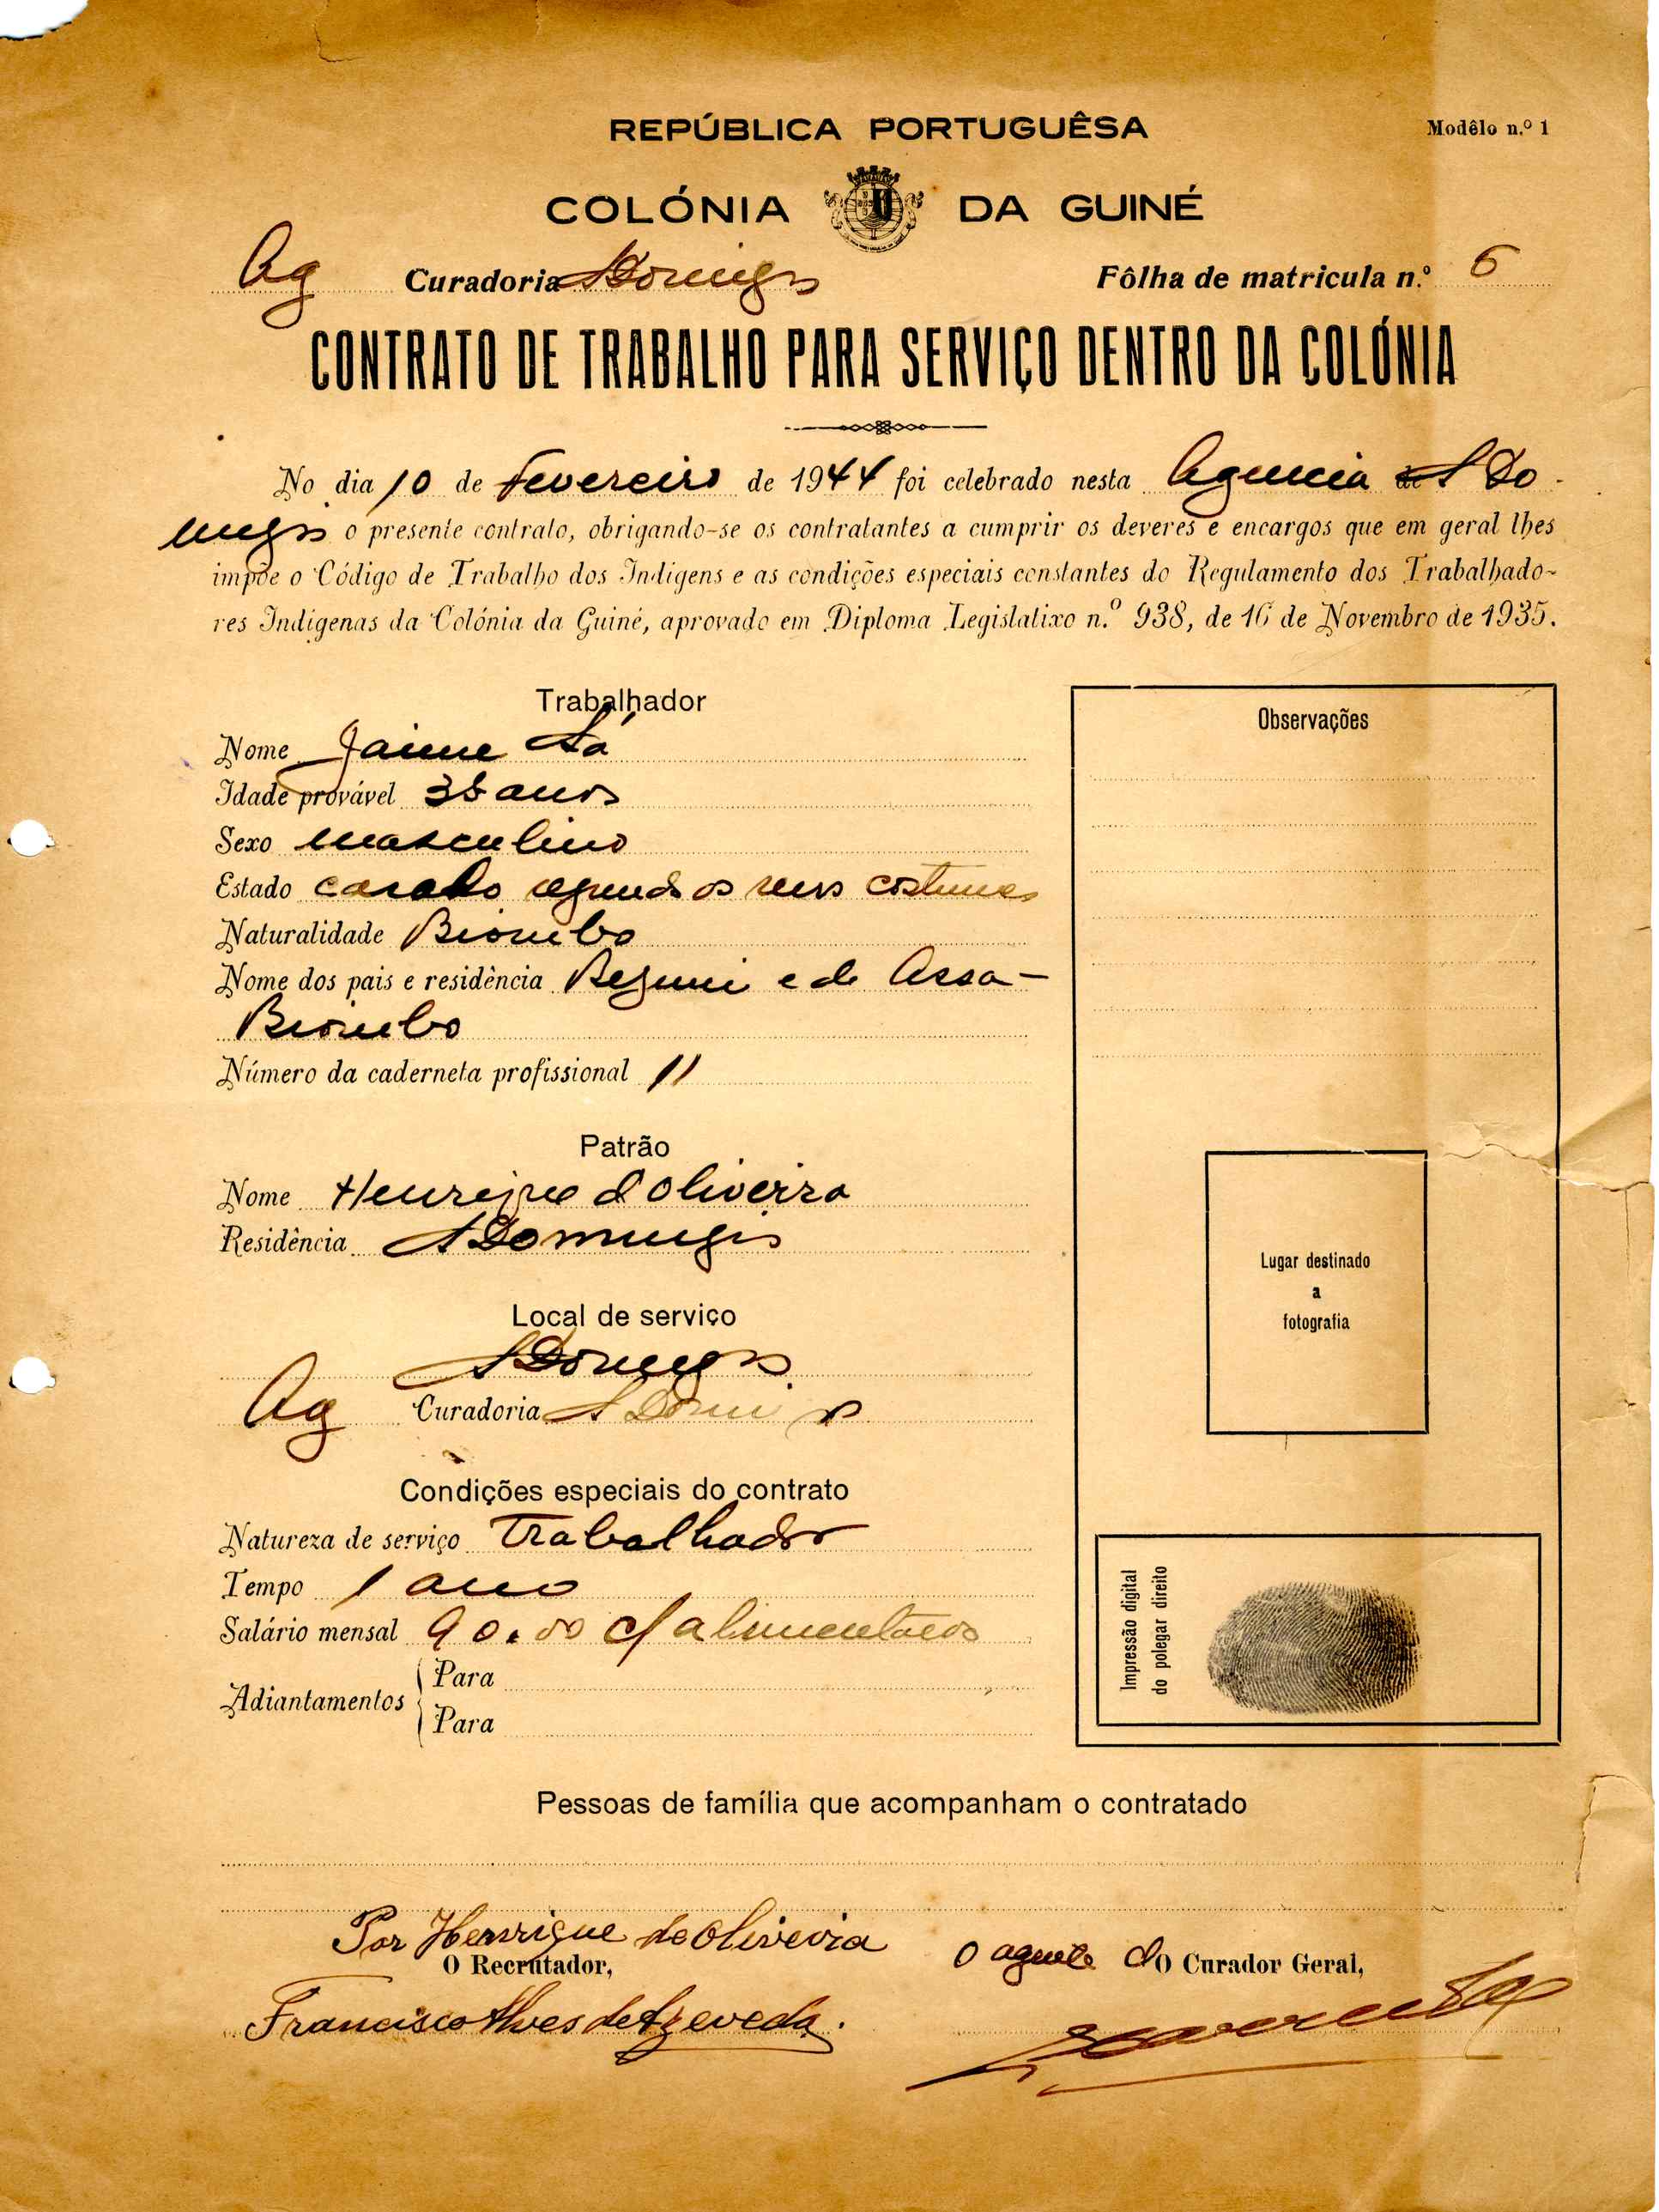 REPÚBLICA PORTUGUÊSA
Modêlo n.º 1
COLÓNIA DA GUINÉ
Ag Curadoria S Domingos Fôlha de matricula n.º 6
CONTRATO DE TRABALHO PARA SERVIÇO DENTRO DA COLÓNIA
No dia 10 de Fevereiro de 1944 foi celebrado nesta Agencia de S Do
mingos o presente contrato, obrigando-se os contratantes a cumprir os deveres e encargos que em geral lhes
impõe o Código de Trabalho dos Indígens e as condições especiais constantes do Regulamento dos Trabalhado-
res Indígenas da Colónia da Guiné, aprovado em Diploma Legislatixo n.º 938, de 16 de Novembro de 1935.
Trabalhador
Nome Jaime Sá
Idade provável 38 anos
Sexo masculino
Estado casado segundo os seus costumes
Naturalidade Biombo
Nome dos pais e residência e de Assa -
Biombo
Número da caderneta profissional 11
Patrão
Nome Henrique d'Oliveira
Residência S Domingos
Local de serviço
S Domingos
Ag Curadoria S Domingos
Condições especiais do contrato
Natureza de serviço Trabalhador
Tempo 1 ano
Salário mensal 90.00 c/ alimentacao
Adiantamentos
Para
Para
Observações
Lugar destinado
a
fotografia
Impressão digital
do polegar direito
Pessoas de família que acompanham o contratado
Por Henrique de Oliveira
O Recrutador,
Francisco Alves de Azevedo.
O agente do O Curador Geral,